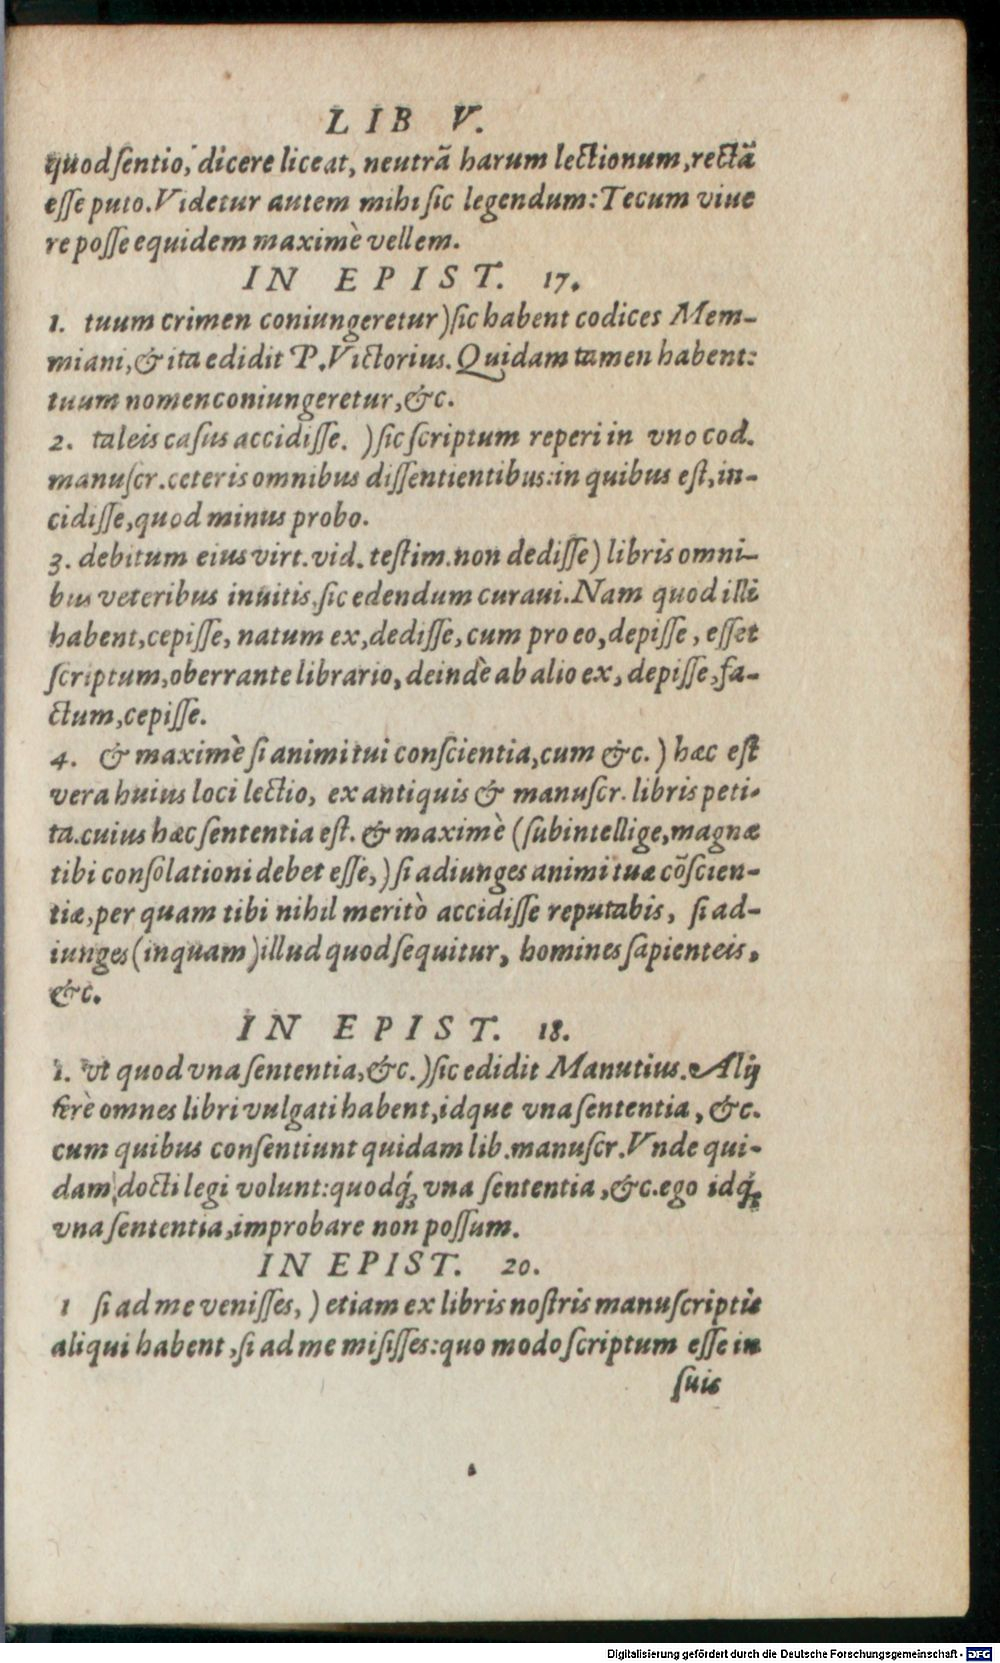 LIB V.
quod sentio, dicere liceat, neutrã harum lectionum, rectã
esse puto. Videtur autem mihi sic legendum: Tecum viue
re posse equidem maximè vellem.
IN EPIST. 17.
1. tuum crimen coniungeretur) sic habent codices Mem-
miani, & ita edidit P. Victorius. Quidam tamen habent:
tuum nomen coniungeretur, &c.
2. taleis casus accidisse. ) sic scriptum reperi in vno cod.
manuscr. ceteris omnibus dissentientibus: in quibus est, in-
cidisse, quod minus probo.
3. debitum eius virt. vid. testim. non dedisse) libris omni-
bus veteribus inuitis, sic edendum curaui. Nam quod illi
habent, cepisse, natum ex, dedisse, cum pro eo, depisse, esset
scriptum, oberrante librario, deindè ab alio ex, depisse, fa-
ctum, cepisse.
4. & maximè si animi tui conscientia, cum &c. ) hæc est
vera huius loci lectio, ex antiquis & manuscr. libris peti-
ta. cuius hæc sententia est. & maximè (subintellige, magnæ
tibi consolationi debet esse,) si adiunges animi tuæ cõscien-
tiæ, per quam tibi nihil meritò accidisse reputabis, si ad-
iunges (inquam) illud quod sequitur, homines sapienteis,
&c.
IN EPIST. 18.
1. vt quod vna sententia, &c.) sic edidit Manutius. Alij
ferè omnes libri vulgati habent, idque vna sententia, &c.
cum quibus consentiunt quidam lib. manuscr. Vnde qui-
dam docti legi volunt: quodq́; vna sententia, &c. ego idq́;
vna sententia, improbare non possum.
IN EPIST. 20.
1 si ad me venisses, ) etiam ex libris nostris manuscriptis
aliqui habent, si ad me misisses: quo modo scriptum esse in
suis
Digitalisierung gefördert durch die Deutsche Forschungsgemeinschaft - DFG